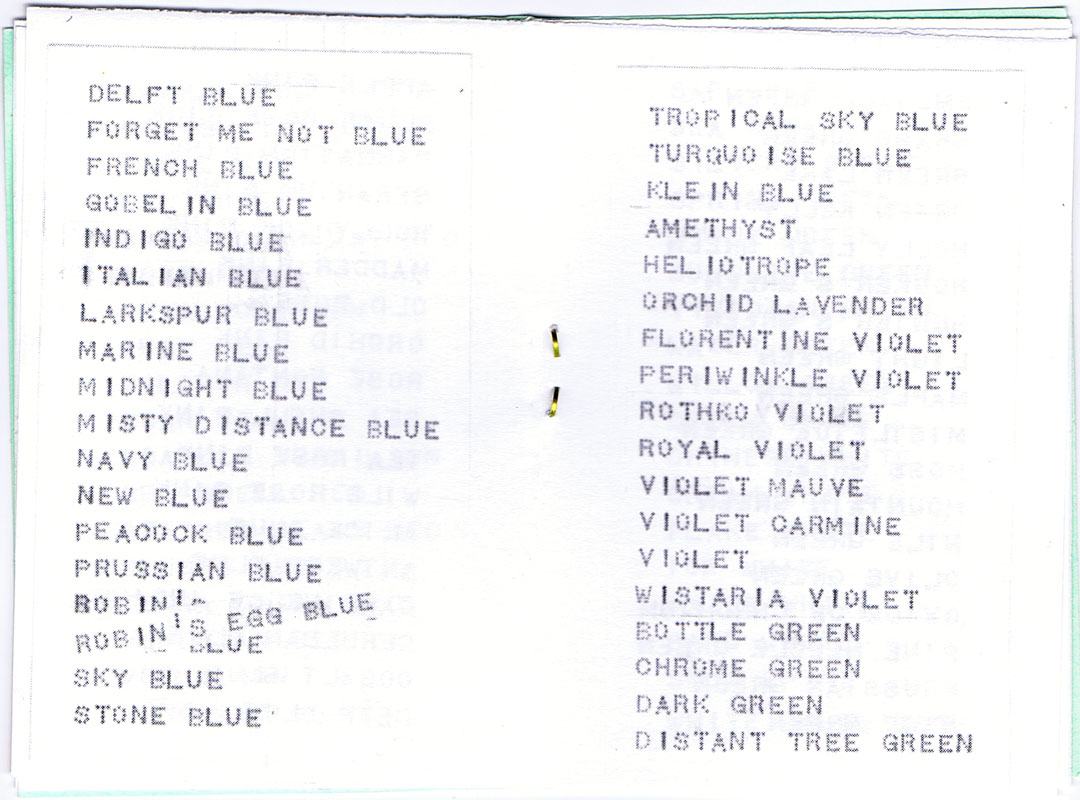 DELFT BLUE
FORGET ME NOT BLUE
FRENCH BLUE
GOBELIN BLUE
INDIGO BLUE
ITALIAN BLUE
LARKSPUR BLUE
MARINE BLUE
MIDNIGHT BLUE
MISTY DISTANCE BLUE
NAVY BLUE
NEW BLUE
PEACOCK BLUE
PRUSSIAN BLUE
ROBIN'S EGG BLUE
ROBIN BLUE
SKY BLUE
STONE BLUE
TROPICAL SKY BLUE
TURQUOISE BLUE
KLEIN BLUE
AMETHYST
HELIOTROPE
ORCHID LAVENDER
FLORENTINE VIOLET
PERIWINKLE VIOLET
ROTHKO VIOLET
ROYAL VIOLET
VIOLET MAUVE
VIOLET CARMINE
VIOLET
WISTARIA VIOLET
BOTTLE GREEN
CHROME GREEN
DARK GREEN
DISTANT TREE GREEN